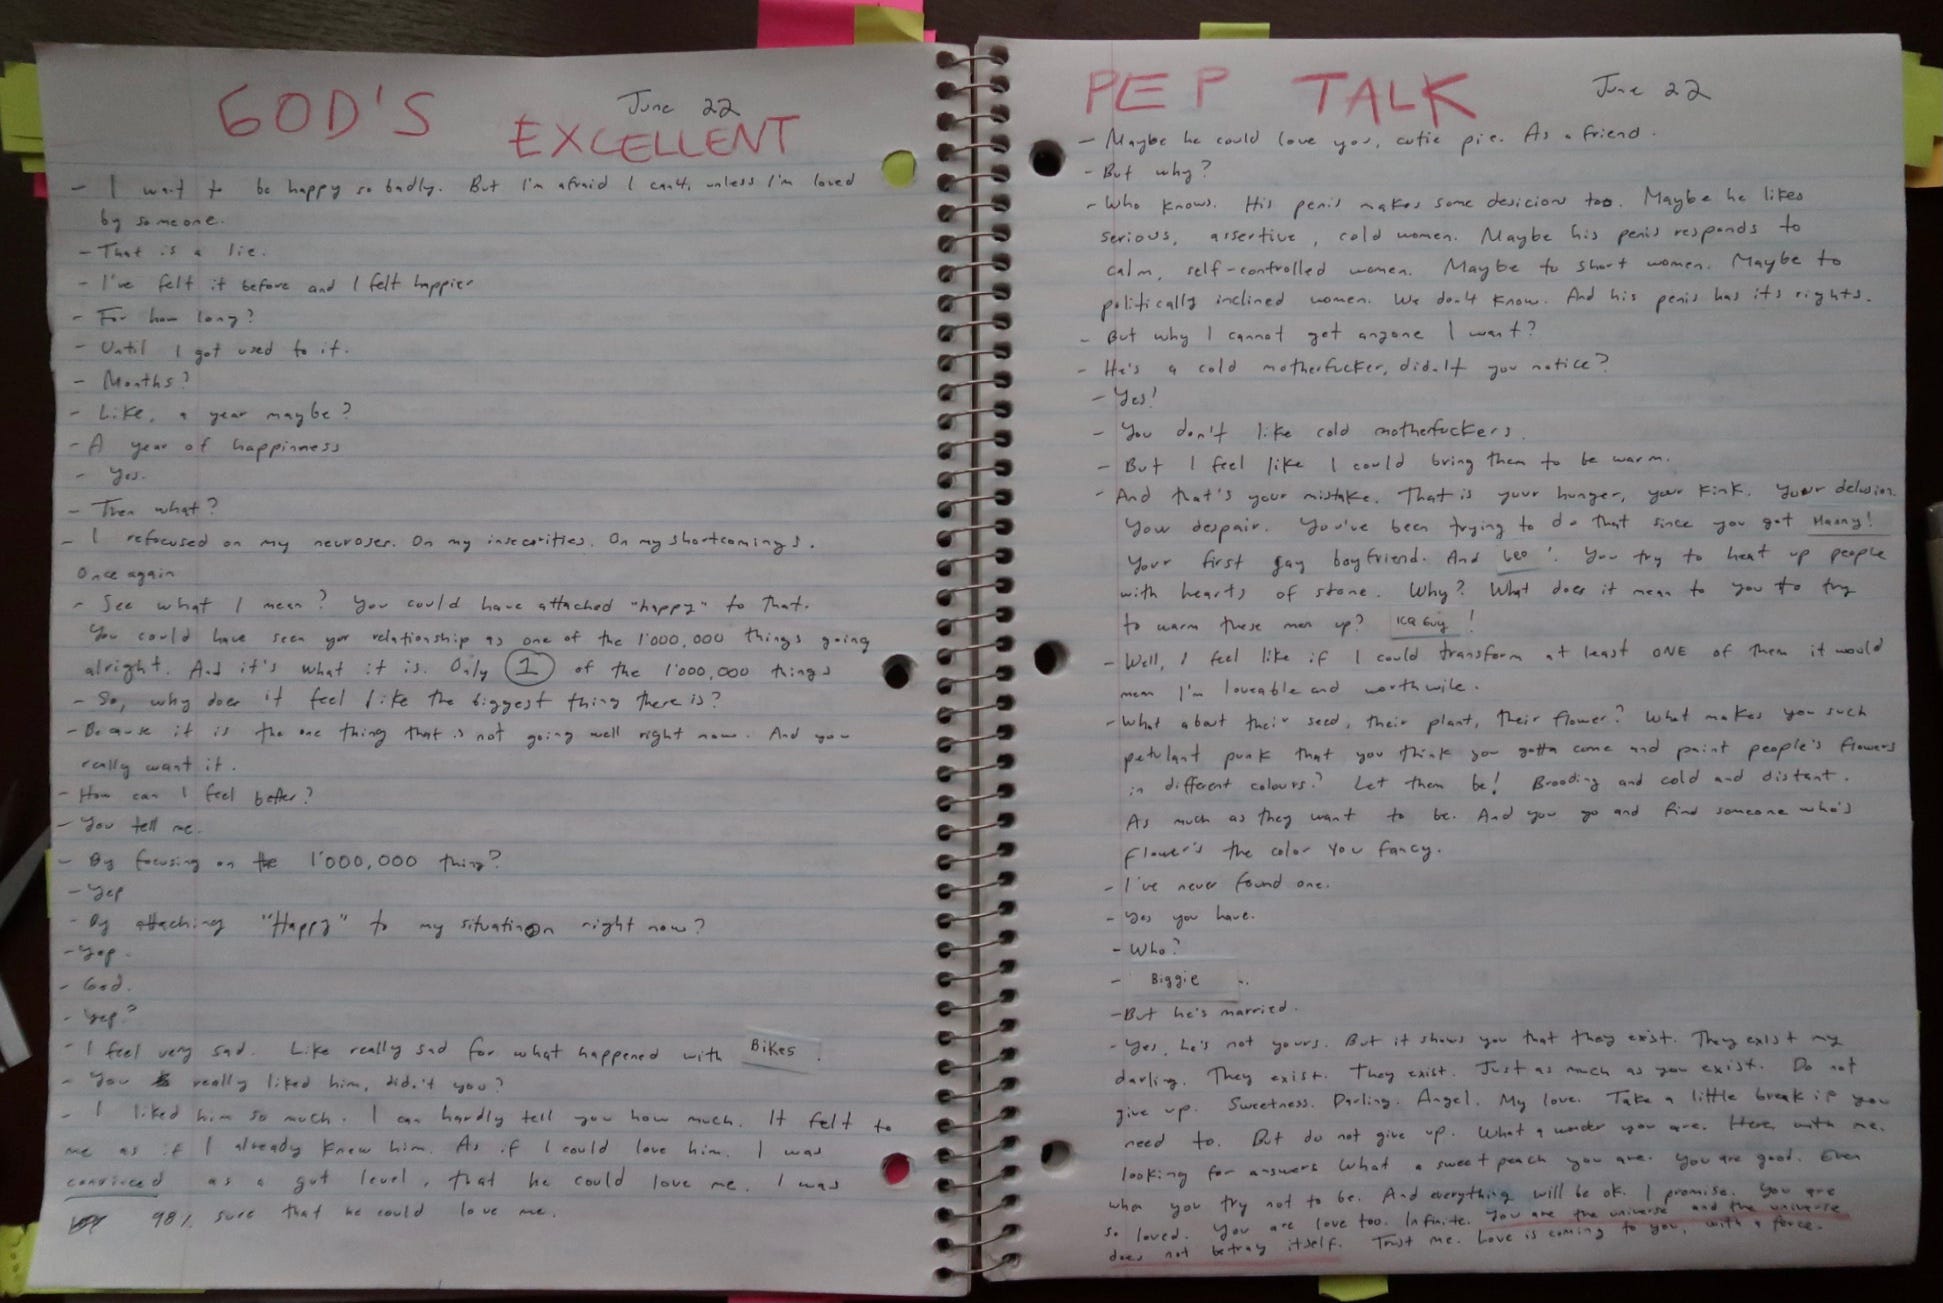 GOD'S
June 22
EXCELLENT
- I want to be happy so badly. But I'm afraid I can't, unless I'm loved
by someone.
- That is a lie.
- I've felt it before and I felt happier
- For how long?
- Until I got used to it.
- Months?
- Like, a year maybe?
- A year of happinness
- Yes.
- Then what?
- I refocused on my neuroses. On my insecurities. On my shortcomings.
Once again
- See what I mean? You could have attached "happy" to that.
You could have seen your relationship as one of the 1'000,000 things going
alright. And it's what it is. Only 1 of the 1'000,000 things
- So, why does it feel like the biggest thing there is?
- Because it is the one thing that is not going well right now. And you
really want it.
- How can I feel better?
- You tell me.
- By focusing on the 1'000,000 thing?
- Yep
- By attaching "Happy" to my situation right now?
- Yep.
- God.
- Yep?
- I feel very sad. Like really sad for what happened with Bikes.
- You really liked him, didn't you?
- I liked him so much. I can hardly tell you how much. It felt to
me as if I already knew him. As if I could love him. I was
convinced as a gut level, that he could love me. I was
98% sure that he could love me.
PEP TALK
June 22
- Maybe he could love you, cutie pie. As a friend.
- But why?
- Who knows. His penis makes some desicions too. Maybe he likes
serious, assertive, cold women. Maybe his penis responds to
calm, self-controlled women. Maybe to short women. Maybe to
politically inclined women. We don't know. And his penis has its rights.
- But why I cannot get anyone I want?
- He's a cold motherfucker, didn't you notice?
- Yes!
- You don't like cold motherfuckers.
- But I feel like I could bring them to be warm.
- And that's your mistake. That is your hunger, your kink. Your delusion.
Your despair. You've been trying to do that since you got Manny!
Your first gay boyfriend. And Leo! You try to heat up people
with hearts of stone. Why? What does it mean to you to try
to warm these men up? Ice Guy!
- Well, I feel like if I could transform at least ONE of them it would
mean I'm loveable and worthwile.
- What about their seed, their plant, their flower? What makes you such
petulant punk that you think you gotta come and paint people's flowers
in different colours? Let them be! Brooding and cold and distant.
As much as they want to be. And you go and find someone who's
flower's the color you fancy.
- I've never found one.
- Yes you have.
- Who?
- Biggie.
- But he's married.
- Yes, he's not yours. But it shows you that they exist. They exist my
darling. They exist. They exist. Just as much as you exist. Do not
give up. Sweetness. Darling. Angel. My love. Take a little break if you
need to. But do not give up. What a wonder you are. Here, with me.
looking for answers What a sweet peach you are. You are good. Even
when you try not to be. And everything will be ok. I promise. You are
so loved. You are love too. Infinite. You are the universe and the universe
does not betray itself. Trust me. Love is coming to you, with a force.